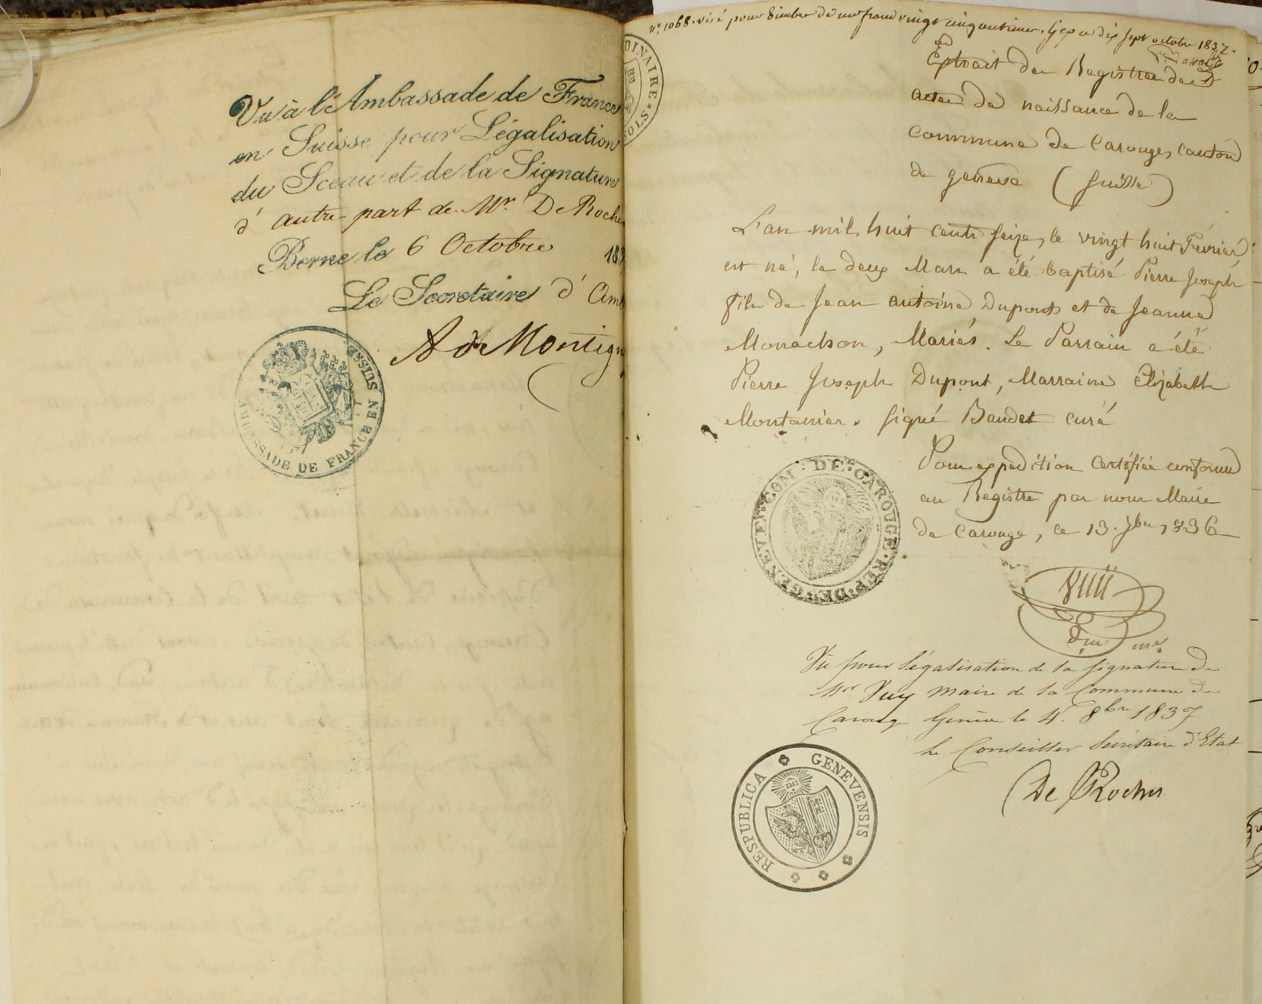 Vu à l'Ambassade de France
en Suisse pour Légalisation
du Sceau et de la Signature
d'autre part de Mr. De Roche
Berne le 6 Octobre 183
Le Secrétaire d'Am
A de Montign
AMBASSADE DE FRANCE EN SUISSE
DINAIRE
SOLS
N° 1068. visé pour timbre de un franc vingt cinq centimes. Gex ce dix sept octobre 1837.
Extrait des Registres des
actes de naissance de la
commune de Carouge, canton
de genève (Suisse)
L'an mil huit cent seize, le vingt huit Février
est né, le deux Mars a été baptisé Pierre Joseph
fils de Jean antoine Dupont et de Jeanne
Monachon, Mariés. Le Parrain a été
Pierre Joseph Dupont, Marraine Elizabeth
Montanier. Signé Baudet curé
Pour expédition certifiée conforme
au Registre par nous Maire
de Carouge, ce 13. 7bre 1836
COM. DE CAROUGE RÉP. DE GENEVE
Vu pour légalisation de la signature de
Mr Vuy maire de la Commune de
Carouge Genève le 4. 8bre 1837
Le Conseiller Secrétaire d'Etat
De Roches
RESPUBLICA GENEVENSIS